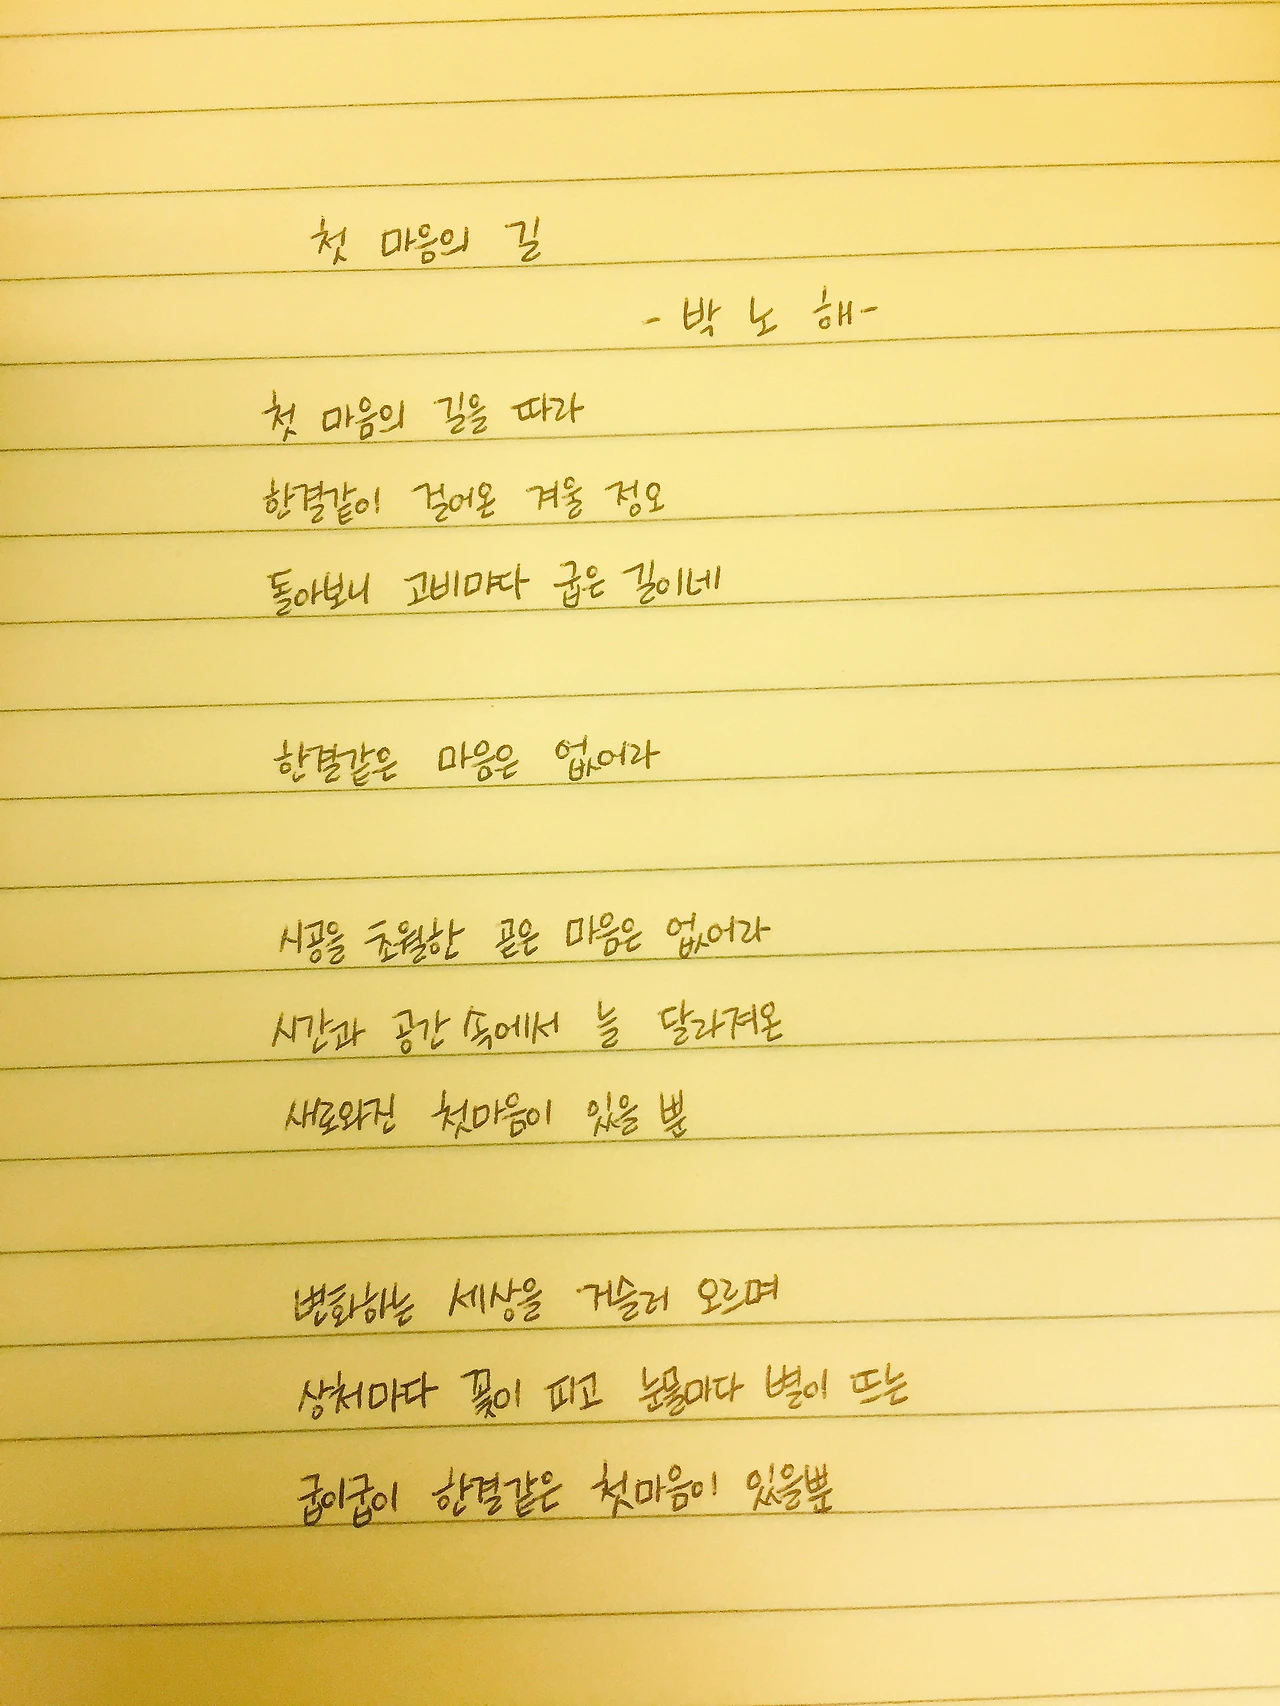 첫 마음의 길
- 박 노 해 -
첫 마음의 길을 따라
한결같이 걸어온 겨울 정오
돌아보니 고비마다 굽은 길이네
한결같은 마음은 없어라
시공을 초월한 곧은 마음은 없어라
시간과 공간 속에서 늘 달라져온
새로와진 첫마음이 있을 뿐
변화하는 세상을 거슬러 오르며
상처마다 꽃이 피고 눈물마다 별이 뜨는
굽이굽이 한결같은 첫마음이 있을뿐